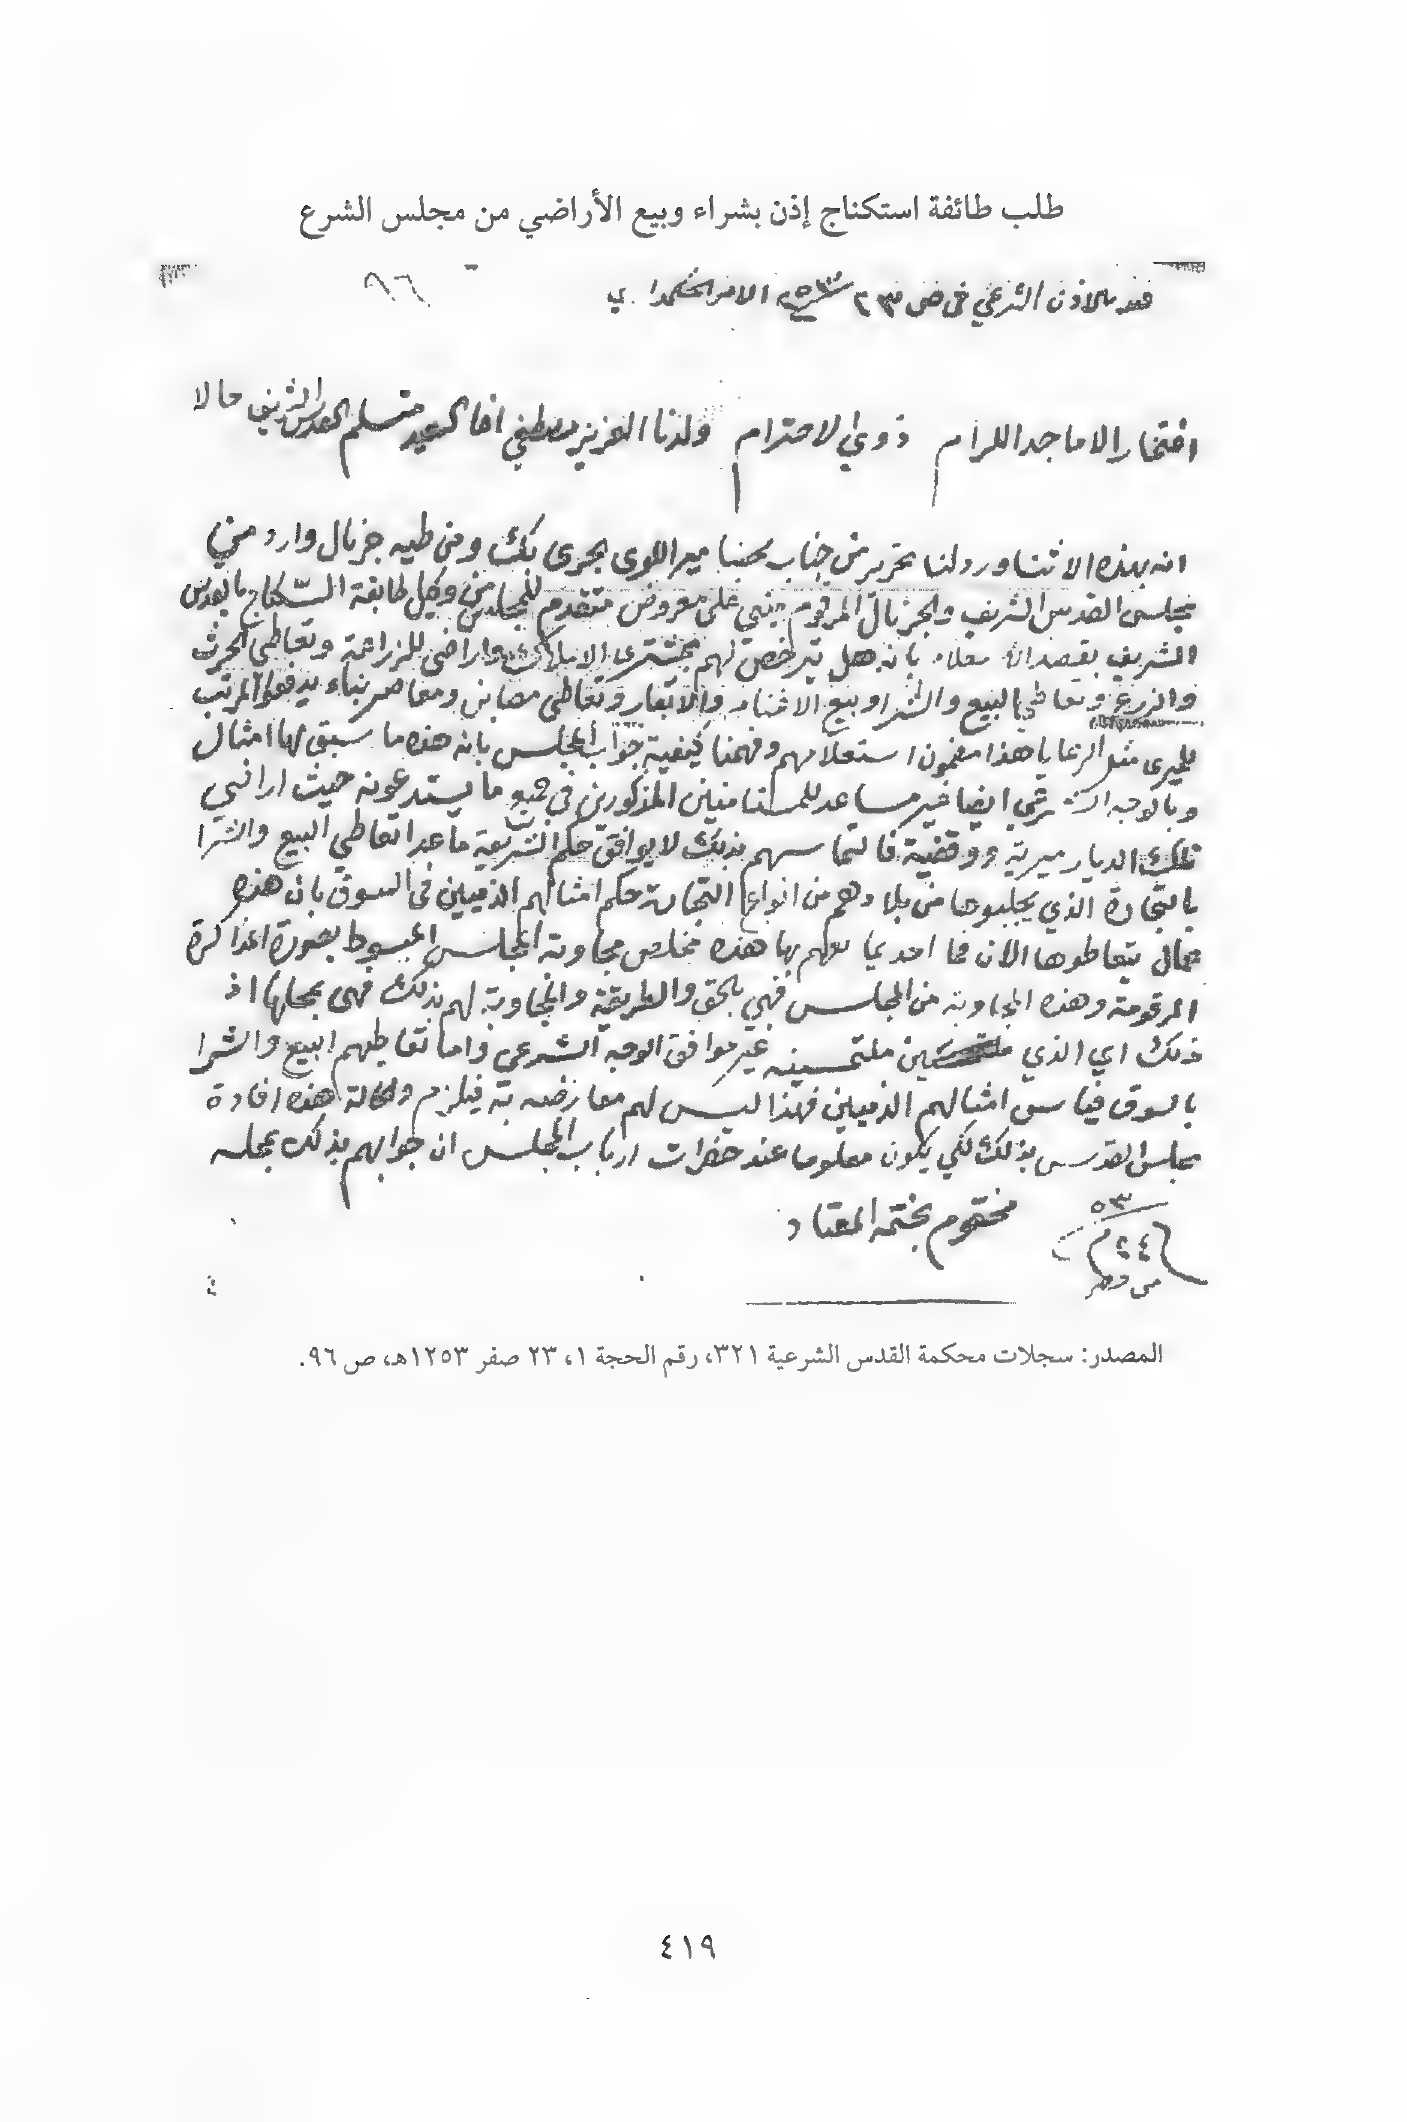 طلب طائفة استكناج إذن بشراء وبيع الأراضي من مجلس الشرع
٩٦
قيد بالاذن الشرعي في ٢٣ ص سنة ٥٣ الامر الحكمداري
افتخار الاماجد الكرام ذوي الاحترام ولدنا العزيز مصطفى اغا السعيد متسلم القدس الشريف حالا
انه بهذه الاثنا ورد لنا تحرير من جناب محبنا ميراللوى بحري بك ومن طيه جرنال وارد من
مجلس القدس الشريف والجرنال المرقوم مبني على معروض متقدم للمجلس من وكيل طايفة السكناج بالقدس
الشريف بقصد الاستعلام بانه هل يترخص لهم بمشترى الاملاك واراضي للزراعة وتعاطي الحرث
والزرع وتعاطي البيع والشرا وبيع الاغنام والابقار وتعاطي مصابن ومعاصر بناء يدفعوا المرتب
للميرى مثل الرعايا هذا مضمون استعلامهم وفهمنا كيفية جواب المجلس بانه هذه ما سبق لها امثال
وبالوجه الشرعي ايضا غير مساعد للمستامنين المذكورين في جميع ما يستدعونه حيث اراضي
تلك الديار ميرية ووقفية فالتماسهم بذلك لا يوافق حكم الشريعة ما عدا تعاطي البيع والشرا
بالتجارة الذي يجلبوها من بلادهم من انواع التجارة حكم امثالهم الذميين في السوق بان هذه
يتعاطوها الان فما احد هذه مخلص مجاوبة المجلس المبسوط بصورة المذاكرة
المرقومة وهذه المجاوبة من المجلس فهي بالحق والطريقة والمجاوبة لهم بذلك فهي بمحلها اذ
ذلك اي الذي ملتمسينه غير موافق الوجه الشرعي واما تعاطيهم البيع والشرا
بالسوق قياس امثالهم الذميين فهذا ليس لهم معارضه به فيلزم والحالة هذه افادة
مجلس القدس بذلك لكي يكون معلوما عند حضرات ارباب المجلس ان جوابهم بذلك بمحله
مختوم بختمه المعتاد
٥٣
٢٤
المصدر: سجلات محكمة القدس الشرعية ٣٢١، رقم الحجة ١، ٢٣ صفر ١٢٥٣هـ، ص ٩٦.
٤١٩